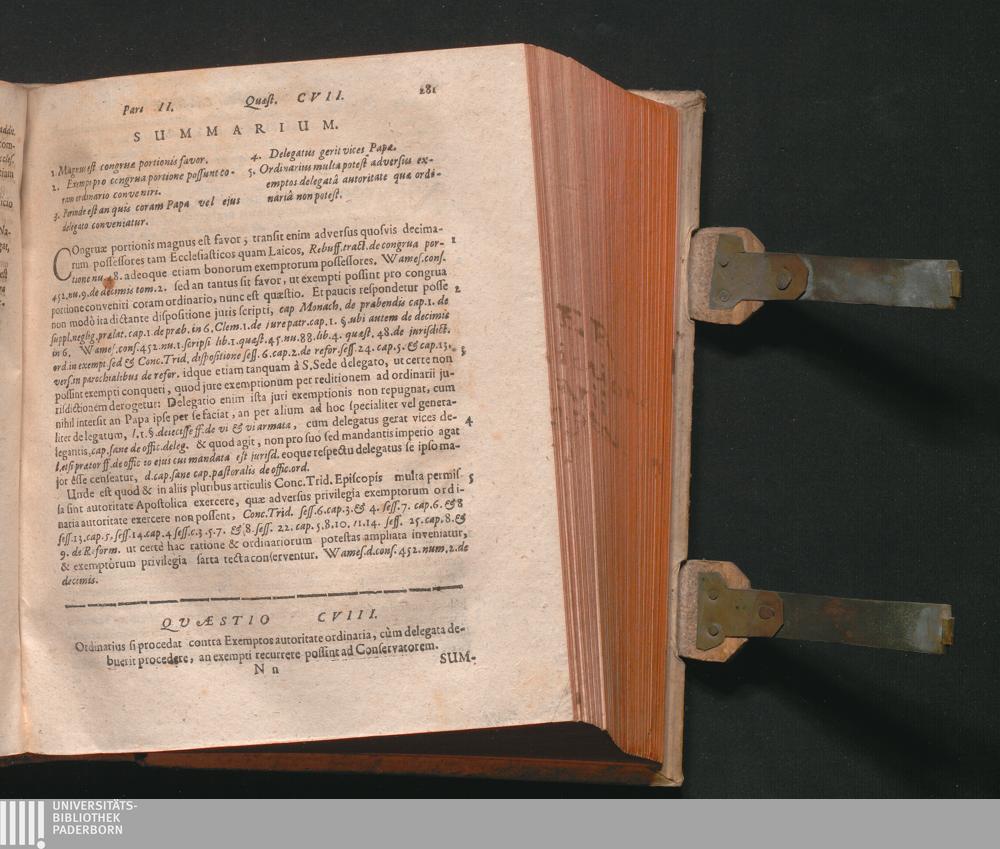 Pars II. Quæst. CVII. 281
SUMMARIUM.
1 Magnus est congruæ portionis favor.
2. Exempi pro congrua portione possunt co-
ram ordinario conveniri.
3. Perinde est an quis coram Papa vel ejus
delegato conveniatur.
4. Delegatus gerit vices Papæ.
5. Ordinarius multa potest adversus ex-
emptos delegatâ autoritate quæ ordi-
nariâ non potest.
COngruæ portionis magnus est favor; transit enim adversus quosvis decima- 1
rum possessores tam Ecclesiasticos quam Laicos, Rebuff. tract. de congrua por-
tione nu. 8. adeoque etiam bonorum exemptorum possessores. Wames. cons.
452. nu. 9. de decimis tom. 2. sed an tantus sit favor, ut exempti possint pro congrua
portione conveniri coram ordinario, nunc est quæstio. Et paucis respondetur posse 2
non modò ita dictante dispositione juris scripti, cap Monach. de præbendis cap. 1. de
suppl. neglig. prælat. cap. 1. de præb. in 6. Clem. 1. de jure patr. cap. 1. §. ubi autem de decimis
in 6. Wames. cons. 452. nu. 1. scripsi lib. 1. quæst. 45. nu. 88. lib. 4. quæst. 48. de jurisdict.
ord. in exempt. sed & Conc. Trid. dispositione sess. 6. cap. 2. de refor. sess. 24. cap. 5. & cap. 13.
vers. in parochialibus de refor. idque etiam tanquam à S. Sede delegato, ut certe non 3
possint exempti conqueri, quod jure exemptionum per reditionem ad ordinarii ju-
risdictionem derogetur: Delegatio enim ista juri exemptionis non repugnat, cum
nihil intersit an Papa ipse per se faciat, an per alium ad hoc specialiter vel genera-
liter delegatum, l. 1. §. deiecisse ff. de vi & vi armata, cum delegatus gerat vices de- 4
legantis, cap. sane de offic. deleg. & quod agit, non pro suo sed mandantis imperio agat
l. etsi prætor ff. de offic eo ejus cui mandata est jurisd. eoque respectu delegatus se ipso ma-
jor esse censeatur, d. cap. sane cap. pastoralis de offic. ord.
Unde est quod & in aliis pluribus articulis Conc. Trid. Episcopis multa permis- 5
sa sint autoritate Apostolica exercere, quæ adversus privilegia exemptorum ordi-
naria autoritate exercere non possent, Conc. Trid. sess. 6. cap. 3. & 4. sess. 7. cap. 6. & 8
sess. 13. cap. 5. sess. 14. cap. 4 sess. c. 3. 5. 7. & 8. sess. 22. cap. 5. 8. 10. 11. 14. sess. 25. cap. 8. &
9. de Reform. ut certè hac ratione & ordinariorum potestas ampliata inveniatur,
& exemptorum privilegia sarta tecta conserventur. Wames. d. cons. 452. num. 2. de
decimis.
QUÆSTIO CVIII.
Ordinarius si procedat contra Exemptos autoritate ordinaria, cùm delegata de-
buerit procedere, an exempti recurrere possint ad Conservatorem.
N n SUM-
UNIVERSITÄTS-
BIBLIOTHEK
PADERBORN